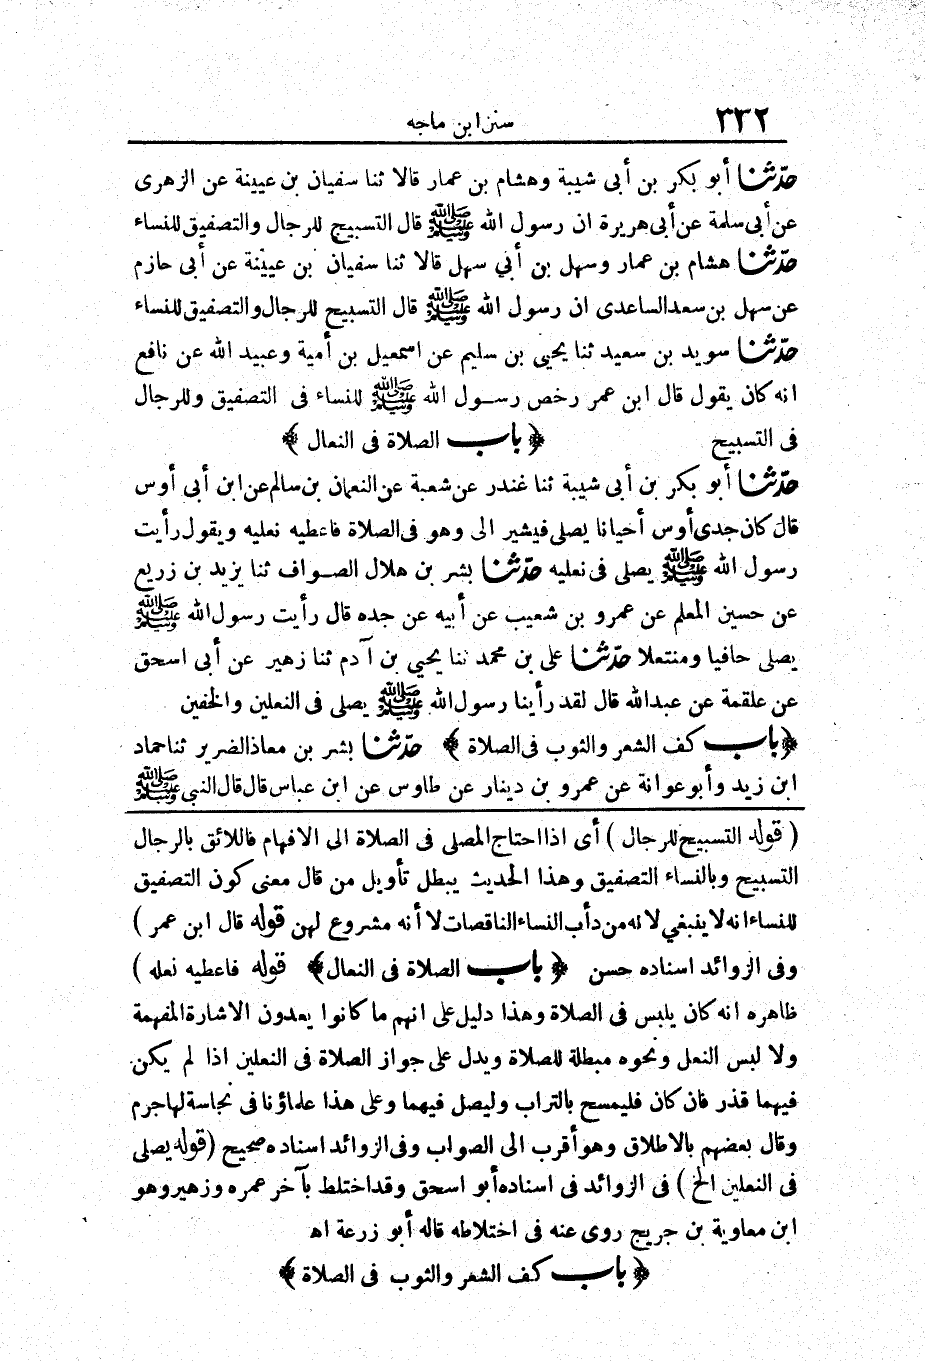 ٣٣٢
سنن ابن ماجه
حدّثنا أبو بكر بن أبى شيبة وهشام بن عمار قالا ثنا سفيان بن عيينة عن الزهرى
عن أبى سلمة عن أبى هريرة ان رسول الله ﷺ قال التسبيح للرجال والتصفيق للنساء
حدّثنا هشام بن عمار وسهل بن أبي سهل قالا ثنا سفيان بن عيينة عن أبى حازم
عن سهل بن سعد الساعدى ان رسول الله ﷺ قال التسبيح للرجال والتصفيق للنساء
حدّثنا سويد بن سعيد ثنا يحيى بن سليم عن اسمعيل بن أمية وعبيد الله عن نافع
انه كان يقول قال ابن عمر رخص رسول الله ﷺ للنساء فى التصفيق وللرجال
فى التسبيح ﴿ باب الصلاة فى النعال ﴾
حدّثنا أبو بكر بن أبى شيبة ثنا غندر عن شعبة عن النعمان بن سالم عن ابن أبى أوس
قال كان جدى أوس أحيانا يصلى فيشير الى وهو فى الصلاة فاعطيه نعليه ويقول رأيت
رسول الله ﷺ يصلى فى نعليه حدّثنا بشر بن هلال الصواف ثنا يزيد بن زريع
عن حسين المعلم عن عمرو بن شعيب عن أبيه عن جده قال رأيت رسول الله ﷺ
يصلى حافيا ومنتعلا حدّثنا على بن محمد ثنا يحيي بن آدم ثنا زهير عن أبى اسحق
عن علقمة عن عبدالله قال لقد رأينا رسول الله ﷺ يصلى فى النعلين والخفين
﴿ باب كف الشعر والثوب فى الصلاة ﴾ حدّثنا بشر بن معاذ الضرير ثنا حماد
ابن زيد وأبو عوانة عن عمرو بن دينار عن طاوس عن ابن عباس قال قال النبى ﷺ
( قوله التسبيح للرجال ) أى اذا احتاج المصلى فى الصلاة الى الافهام فاللائق بالرجال
التسبيح وبالنساء التصفيق وهذا الحديث يبطل تأويل من قال معنى كون التصفيق
للنساء انه لا ينبغي لانه من دأب النساء الناقصات لا أنه مشروع لهن قوله قال ابن عمر )
وفى الزوائد اسناده حسن ﴿ باب الصلاة فى النعال ﴾ قوله فاعطيه نعله )
ظاهره انه كان يلبس فى الصلاة وهذا دليل على انهم ما كانوا يعدون الاشارة المفهمة
ولا لبس النعل ونحوه مبطلة للصلاة ويدل على جواز الصلاة فى النعلين اذا لم يكن
فيهما قذر فان كان فليمسح بالتراب وليصل فيهما وعلى هذا علماؤنا فى نجاسة لها جرم
وقال بعضهم بالاطلاق وهو أقرب الى الصواب وفى الزوائد اسناده صحيح ( قوله يصلى
فى النعلين الخ ) فى الزوائد فى اسناده أبو اسحق وقد اختلط بآخر عمره وزهير وهو
ابن معاوية بن جريج روى عنه فى اختلاطه قاله أبو زرعة اه
﴿ باب كف الشعر والثوب فى الصلاة ﴾